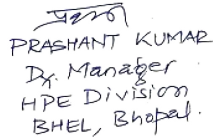 प्रशान्त
PRASHANT KUMAR
Dy. Manager
HPE Division
BHEL, Bhopal.